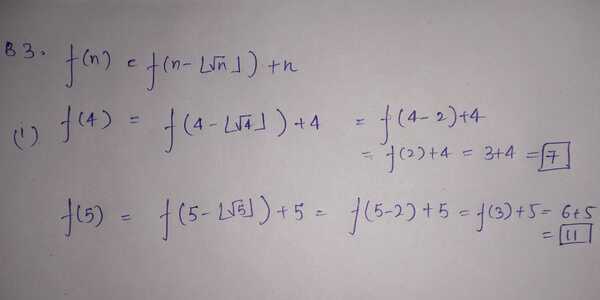 B3. f(n) = f(n-⌊√n⌋) + n
(i) f(4) = f(4-⌊√4⌋) + 4 = f(4-2)+4
= f(2)+4 = 3+4 = 7
f(5) = f(5-⌊√5⌋) + 5 = f(5-2) + 5 = f(3)+5 = 6+5
= 11